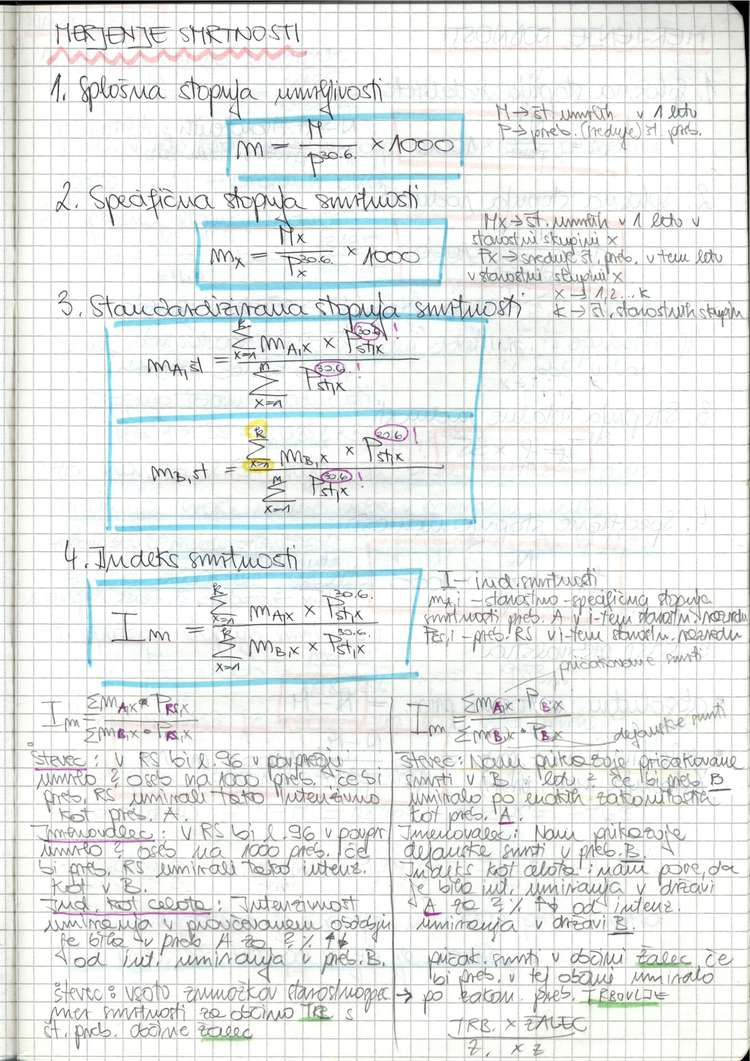 MERJENJE SMRTNOSTI
1. Splošna stopnja umrljivosti
m = M / P30.6. × 1000
M → št. umrlih v 1 letu
P → preb. (srednje) št. preb.
2. Specifična stopnja smrtnosti
mx = Mx / Px30.6. × 1000
Mx → št. umrlih v 1 letu v
starostni skupini x
Px → srednje št. preb. v tem letu
v starostni skupini x
x → 1,2... k
k → št. starostnih skupin
3. Standardizirana stopnja smrtnosti
mA,st = k Σ x=1 mA,x × Pst,x 30.6. ! / m Σ x=1 Pst,x 30.6. !
mB,st = k Σ x=1 mB,x × Pst,x 30.6. ! / m Σ x=1 Pst,x 30.6. !
4. Indeks smrtnosti
Im = k Σ x=1 mA,x × Pst,x 30.6. / k Σ x=1 mB,x × Pst,x 30.6.
I – ind. smrtnosti
mA,i – starostno-specifična stopnja
smrtnosti preb. A v i-tem starostn. razredu
PRS,i – preb. RS v i-tem starostn. razredu
Im = ΣmA,x • PRS,x / ΣmB,x • PRS,x
števec: V RS bi l. 96 v povprečju
umrlo ? oseb na 1000 preb. če bi
preb. RS umirali tako intenzivno
kot preb. A.
Imenovalec: V RS bi l. 96 v povpr.
umrlo ? oseb na 1000 preb. če
bi preb. RS umirali tako intenz.
kot v B.
Ind. kot celota: Intenzivnost
umiranja v proučevanem obdobju
je bila v preb A za ? % ↑↓
od int. umiranja v preb. B.
števec: vsoto zmnožkov starostnospec
mer smrtnosti za občino TRB s
št. preb. občine Žalec
pričakovane smrti
Im = ΣmA,x • PB,x / ΣmB,x • PB,x
dejanske smrti
števec: Nam prikazuje pričakovane
smrti v B letu ? če bi preb B
umiralo po enakih zakonitostih
kot preb. A.
Imenovalec: Nam prikazuje
dejanske smrti v preb. B.
Indeks kot celota: nam pove, da
je bila int. umiranja v državi
A za ? % ↑↓ od intenz.
umiranja v državi B.
pričak. smrti v občini Žalec če
bi preb. v tej občini umiralo
→ po zakon. preb. TRBOVLJE
TRB. × ŽALEC
Ž. × Ž